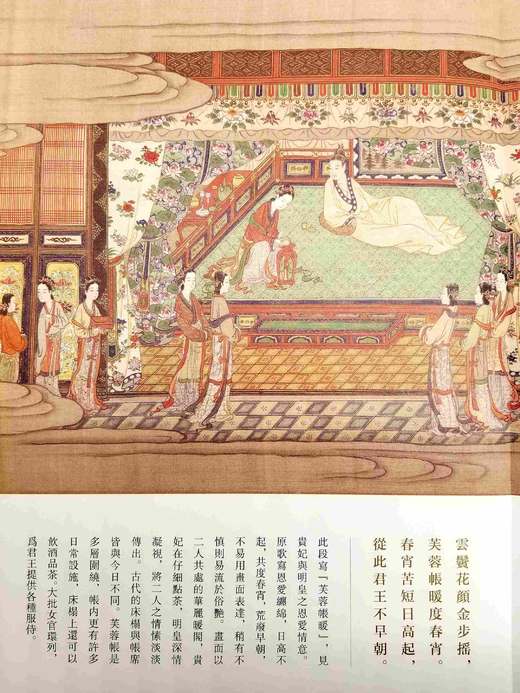 雲鬢花顔金步搖，
芙蓉帳暖度春宵。
春宵苦短日高起，
從此君王不早朝。
此段寫「芙蓉帳暖」，見
貴妃與明皇之恩愛情意。
原歌寫恩愛纏綿，日高不
起，共度春宵，荒廢早朝，
不易用畫面表達，稍有不
慎則易流於俗艷。畫面以
二人共處的華麗暖閣，貴
妃在仔細點茶，明皇深情
凝視，將二人之情愫淡淡
傳出。古代的床榻與帳席
皆與今日不同。芙蓉帳是
多層圍繞，帳內更有許多
日常設施，床榻上還可以
飲酒品茶。大批女官環列，
爲君王提供各種服侍。